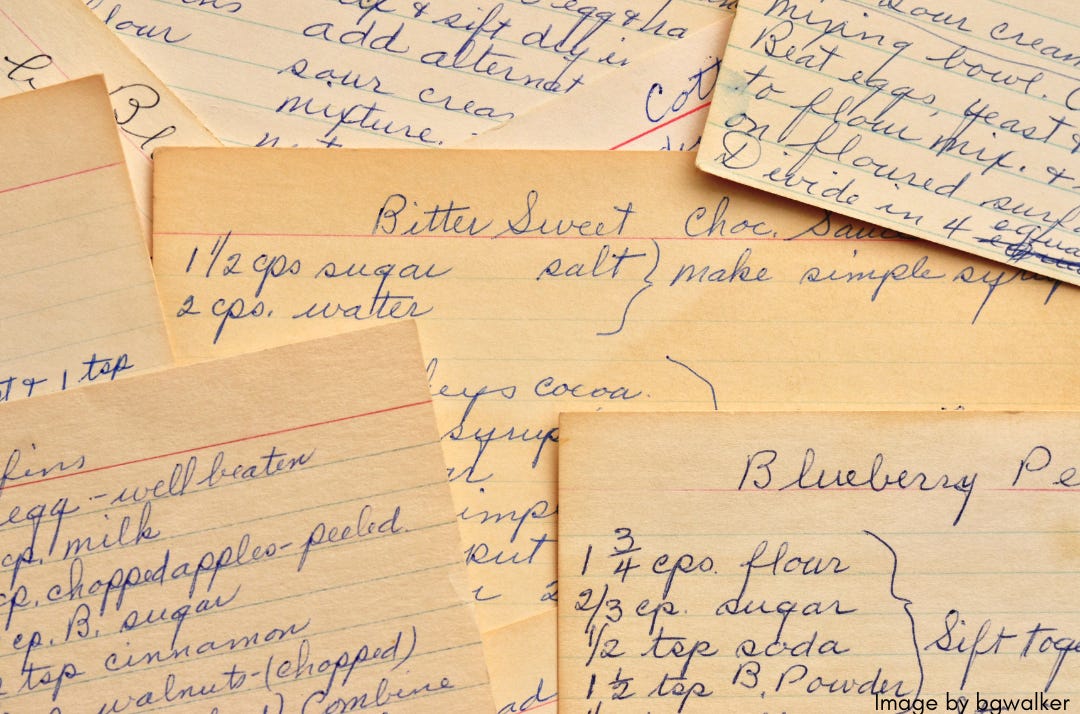 & sift dry in
add alternat
sour crea
mixture.
lour
egg & ha
Cott
Bl
sour cream
mixing bowl.
Beat eggs, yeast &
to flour mix. &
on floured surf
Divide in 4 equa
Bitter Sweet Choc. Sauc
1 1/2 cps sugar salt } make simple syrup
2 cps. watter
leys cocoa.
syrup
imp
put
2
ad
st & 1 tsp
fins
egg - well beaten
cp. milk
cp. chopped apples - peeled.
cp. B. sugar
tsp cinnamon
walnuts - (chopped)
Combine
Blueberry Pe
1 3/4 cps. flour
2/3 cp. sugar
1/2 tsp soda
1 1/2 tsp B. Powder
Sift toge
Image by bgwalker